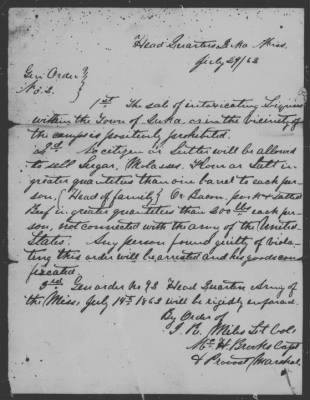 Head Quarters Iuka Miss.
July 29/62
Gen Order
No. 2.
1st The sale of intoxicating Liquors
within the Town of Iuka or in the vicinity of
the camps is positively prohibited.
2d No citizen or Sutler will be allowed
to sell Sugar, Molasses, Flour or Salt in
greater quantities than one barrel to each per-
son, (Head of family) Or Bacon, pork or Salted
Beef in greater quantities than 200 lbs each per-
son, not connected with the army of the United
States. Any person found guilty of viola-
ting this order will be arrested and his goods con-
fiscated.
3rd Gen order No 92 Head Quarters Army of
the Miss, July 14th 1862 will be rigidly enforced.
By Order of
Miles Lt Col
H. Brooks Capt
& Provost Marshal